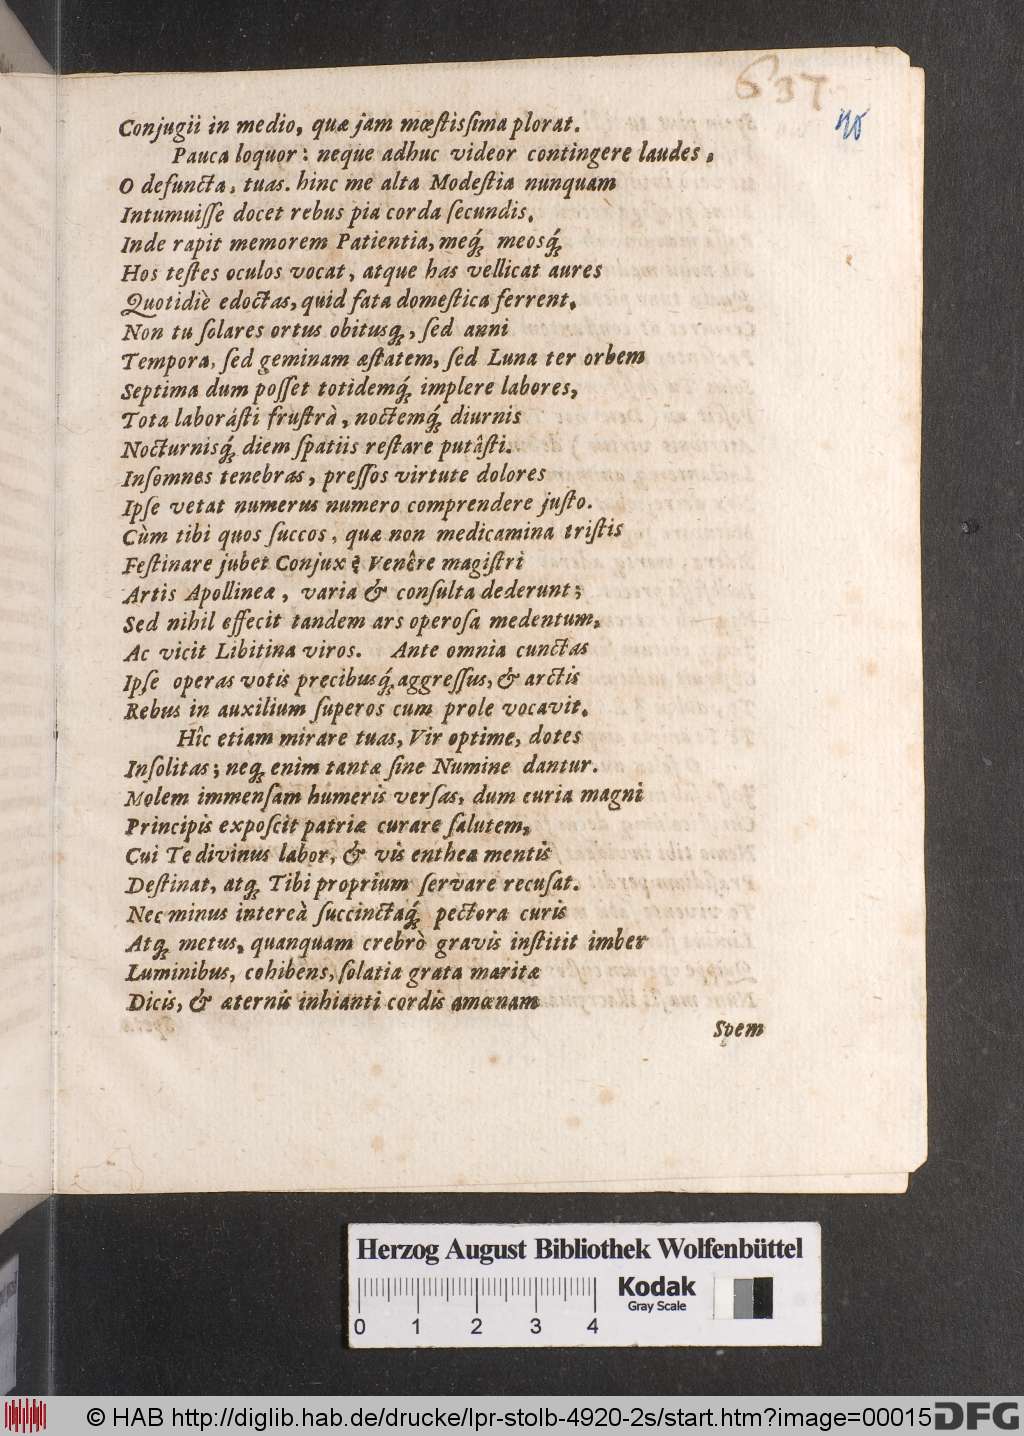 637
Conjugii in medio, quæ jam mœstissima plorat.
Pauca loquor: neque adhuc videor contingere laudes,
O defuncta, tuas. hinc me alta Modestia nunquam
Intumuiſſe docet rebus pia corda ſecundis.
Inde rapit memorem Patientia, meq́; meosq́;
Hos teſtes oculos vocat, atque has vellicat aures
Quotidiè edoctas, quid fata domeſtica ferrent.
Non tu ſolares ortus obitusq;, ſed anni
Tempora, ſed geminam æſtatem, ſed Luna ter orbem
Septima dum poſſet totidemq́; implere labores,
Tota laboráſti fruſtrà, noctemq́; diurnis
Nocturnisq́; diem ſpatiis reſtare putâſti.
Inſomnes tenebras, preſſos virtute dolores
Ipſe vetat numerus numero comprendere juſto.
Cùm tibi quos ſuccos, quæ non medicamina triſtis
Feſtinare jubet Conjux? Venêre magiſtri
Artis Apollineæ, varia & conſulta dederunt;
Sed nihil effecit tandem ars operoſa medentum,
Ac vicit Libitina viros. Ante omnia cunctas
Ipſe operas votis precibusq́; aggreſſus, & arctis
Rebus in auxilium ſuperos cum prole vocavit.
Hîc etiam mirare tuas, Vir optime, dotes
Inſolitas; neq; enim tantæ ſine Numine dantur.
Molem immenſam humeris verſas, dum curia magni
Principis expoſcit patriæ curare ſalutem,
Cui Te divinus labor, & vis enthea mentis
Deſtinat, atq; Tibi proprium ſervare recuſat.
Nec minus intereà ſuccinctaq́; pectora curis
Atq; metus, quanquam crebrò gravis inſtitit imber
Luminibus, cohibens, ſolatia grata maritæ
Dicis, & æternis inhianti cordis amœnam
Spem
Herzog August Bibliothek Wolfenbüttel
0 1 2 3 4
Kodak
Gray Scale
© HAB http://diglib.hab.de/drucke/lpr-stolb-4920-2s/start.htm?image=00015
DFG